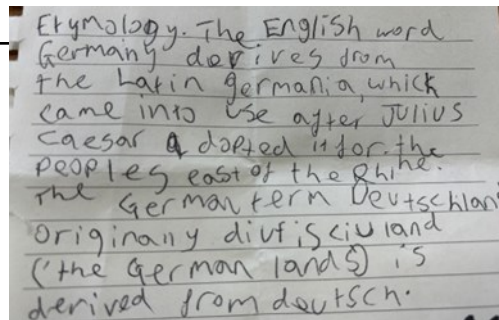 Etymology. The English word
Germany derives from
the Latin germania, which
came into use after Julius
Caesar adopted it for the
peoples east of the Rhine.
The German term Deutschlan
originany diutisciu land
('the German lands) is
derived from deutsch.